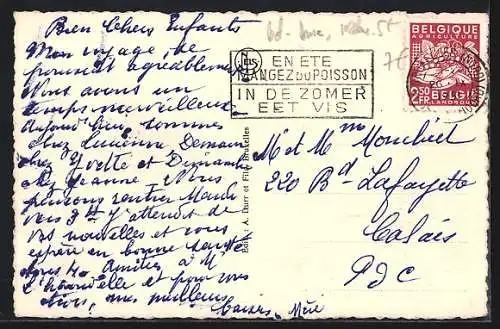 Bien Chers Enfants
Mon voyage, se
poursuit agréablement
Nous avons un
temps merveilleux
aujourd'hui, sommes
chez Lucienne Demain
chez Yvette et Dimanche
chez Jeanne. Nous
pensons rentrer Mardi
vers 3 J'attends de
vos nouvelles et vous
espère en bonne santé
tous Amitiés à M.
et pour vous
mes meilleurs
baisers. Mère
EN ETE
MANGEZ DU POISSON
IN DE ZOMER
EET VIS
BELGIQUE
AGRICULTURE
2,50
FR.
BELGIE
LANDBOUW
Edit.: A. Dohr et Fils, Bruxelles
M. et Mme
220 Bd Lafayette
Calais
PdC